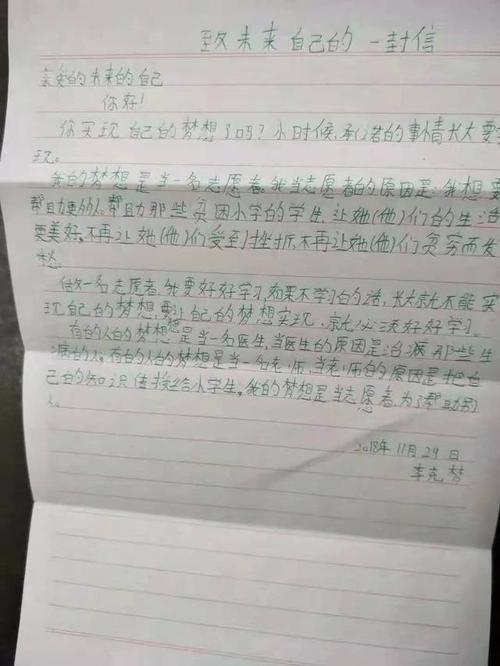 致未来自己的一封信
亲爱的未来的自己
你好!
你实现自己的梦想了吗?小时候,承诺的事情长大要
现。
我的梦想是当一名志愿者。我当志愿者的原因是:我想要
帮助的人。帮助那些贫困小学的学生,让她(他)们的生活
更美好。不再让她(他)们受到挫折,不再让她(他)们贫穷而发
愁。
做一名志愿者,我要好好学习,如果不学习的话,长大就不能实
现自己的梦想,要让自己的梦想实现,就必须好好学习。
有的人的梦想是当一名医生,当医生的原因是治病那些生
病的人。有的人的梦想是当一名老师,当老师的原因是把自
己的知识传授给小学生。我的梦想是当志愿者,为了帮助别
人。
2018年11月29日
李克梦